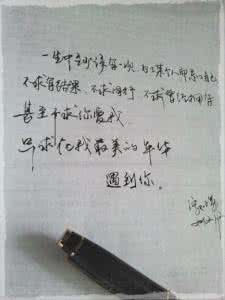 一生中至少该有一次，为了某个人而忘了自己
不求有结果，不求同行，不求曾经拥有
甚至不求你爱我，
只求在我最美的年华
遇到你。